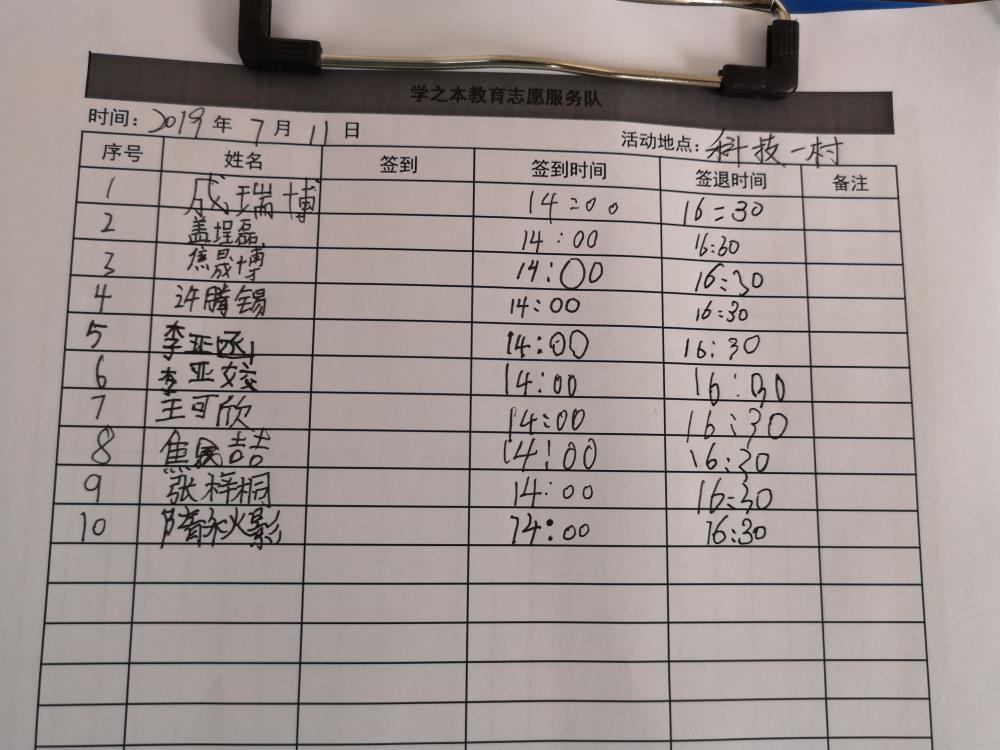 学之本教育志愿服务队
时间：2019年7月11日 活动地点：科技一村
序号 姓名 签到 签到时间 签退时间 备注
1 成瑞博 14:00 16:30
2 盖埕磊 14:00 16:30
3 焦晟博 14:00 16:30
4 许腾锡 14:00 16:30
5 李亚函 14:00 16:30
6 李亚姣 14:00 16:30
7 王可欣 14:00 16:30
8 焦昃喆 14:00 16:30
9 张梓桐 14:00 16:30
10 14:00 16:30